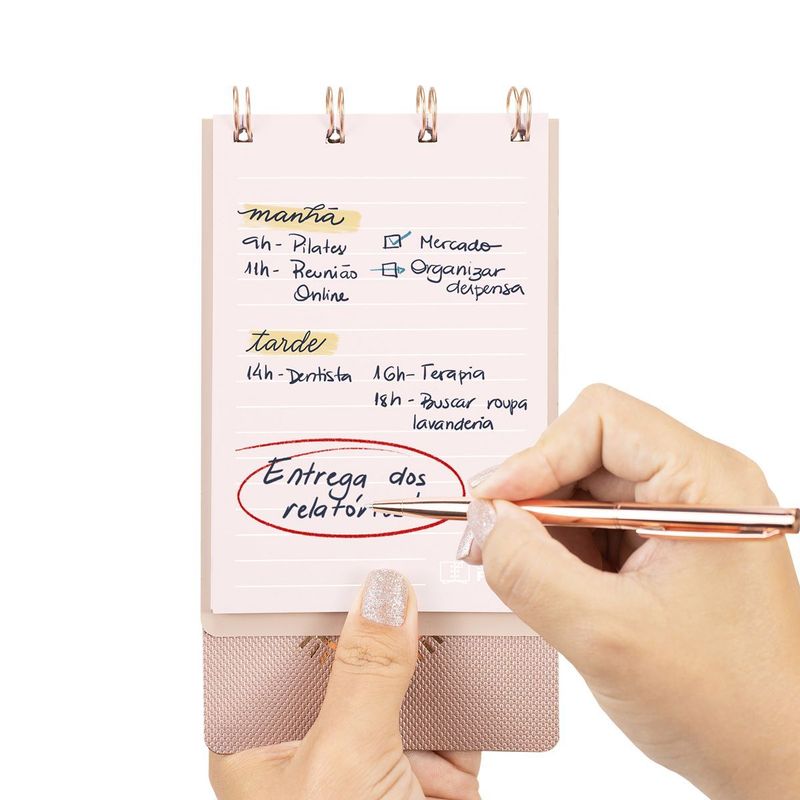 manhã
9h - Pilates
11h - Reunião
Online
Mercado
Organizar
despensa
tarde
14h - Dentista
16h - Terapia
18h - Buscar roupa
lavanderia
Entrega dos